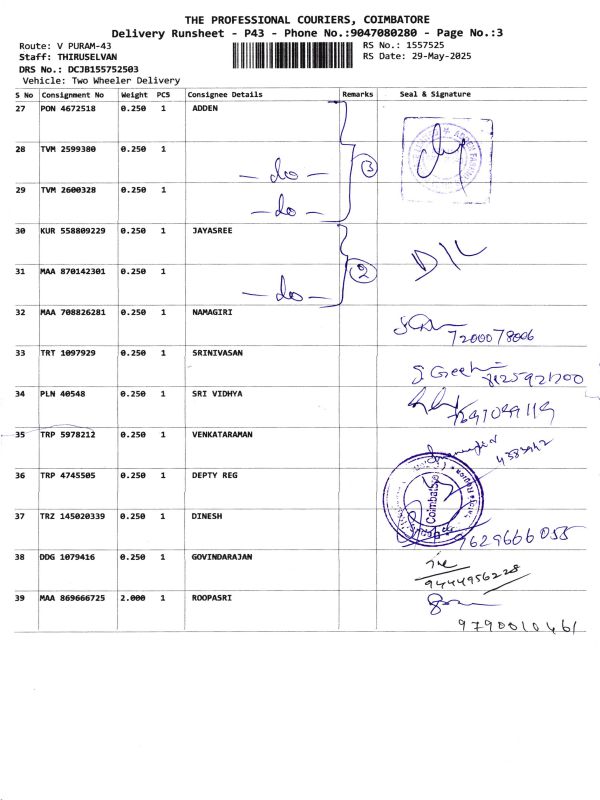 THE PROFESSIONAL COURIERS, COIMBATORE
Delivery Runsheet - P43 - Phone No.:9047080280 - Page No.:3
Route: V PURAM-43 RS No.: 1557525
Staff: THIRUSELVAN RS Date: 29-May-2025
DRS No.: DCJB155752503
Vehicle: Two Wheeler Delivery
S No Consignment No Weight PCS Consignee Details Remarks Seal & Signature
27 PON 4672518 0.250 1 ADDEN
28 TVM 2599380 0.250 1 - do - 3
29 TVM 2600328 0.250 1 - do -
30 KUR 558809229 0.250 1 JAYASREE D/L
31 MAA 870142301 0.250 1 - do - 2
32 MAA 708826281 0.250 1 NAMAGIRI 7200078006
33 TRT 1097929 0.250 1 SRINIVASAN
34 PLN 40548 0.250 1 SRI VIDHYA
35 TRP 5978212 0.250 1 VENKATARAMAN
36 TRP 4745505 0.250 1 DEPTY REG Coimbatore
37 TRZ 145020339 0.250 1 DINESH 9629666055
38 DDG 1079416 0.250 1 GOVINDARAJAN 9444956228
39 MAA 869666725 2.000 1 ROOPASRI
9790010461